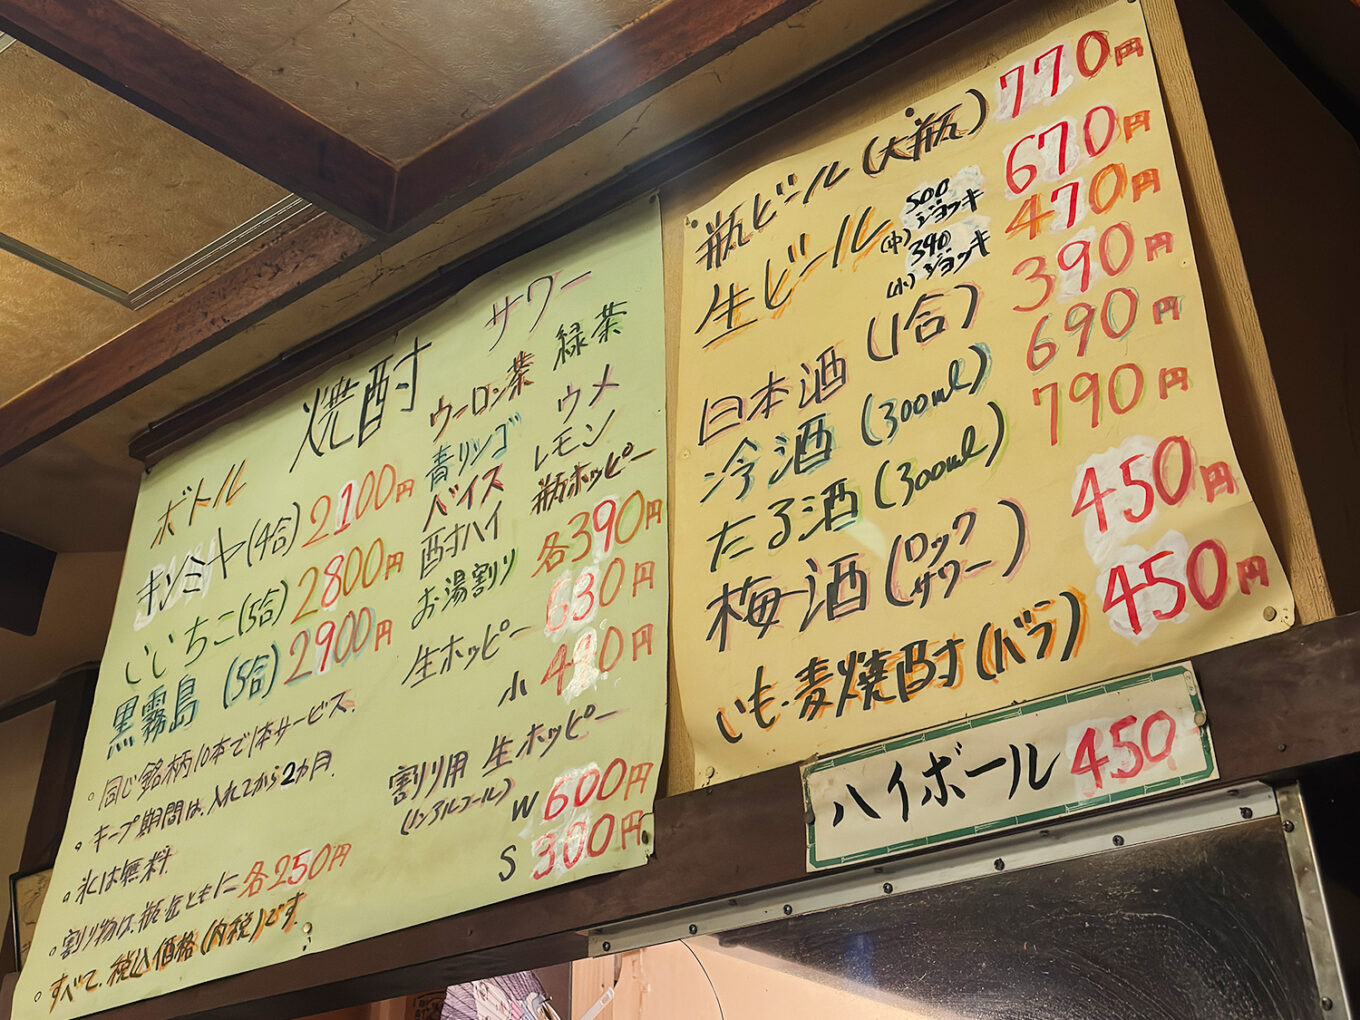 焼酎
ボトル
キンミヤ(4合) 2100円
いいちこ(5合) 2800円
黒霧島 (5合) 2900円
。同じ銘柄10本で1本サービス.
。キープ期間は、入れてから2カ月.
。氷は無料
。割り物は、瓶・缶ともに各250円
。すべて、税込価格(内税)です.
サワー
ウーロン茶 緑茶
青リンゴ ウメ
バイス レモン
酎ハイ 瓶ホッピー
お湯割り 各390円
生ホッピー 630円
小 410円
割り用 生ホッピー
(ノンアルコール) W 600円
S 300円
瓶ビール(大瓶) 770円
生ビール (中) 500 ジョッキ 670円
(小) 390 ジョッキ 470円
日本酒 (1合) 390円
冷酒 (300ml) 690円
たる酒 (300ml) 790円
梅酒 (ロック サワー) 450円
いも・麦焼酎(バラ) 450円
ハイボール 450